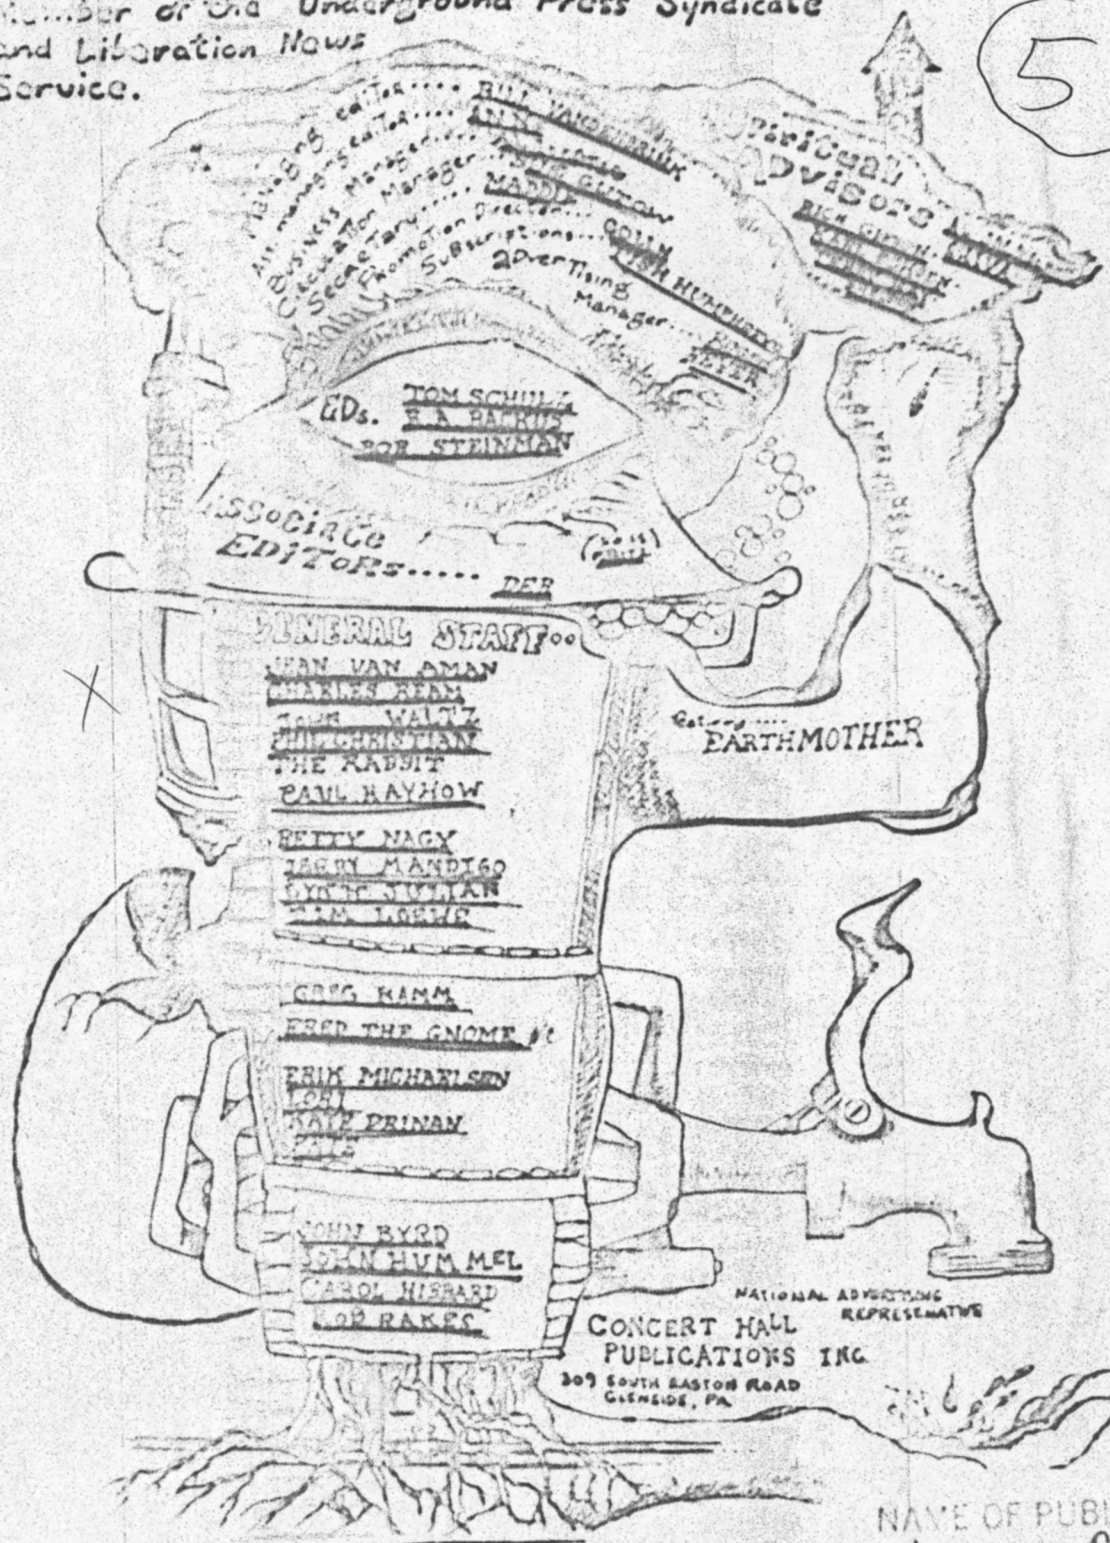 Member of the Underground Press Syndicate
and Liberation News
Service.
5
Managing editor.... BILL VANDENBRINK
Ass. managing editor.... ANN
Business Manager....
Circulation Manager.... SUE GUTOW
Secretary.... MADDIE
Promotion Director... COLLY
Subscriptions... HUMPHERD
aDverTising
Manager....
MEYER
Spiritual
ADvisors
RICH
EDs. TOM SCHULZ
E.A. BACKUS
BOB STEINMAN
Associate
EDiTORS..... DEB
GENERAL STAFF..
JEAN VAN AMAN
CHARLES REAM
JOHN WALTZ
PHIL CHRISTIAN
THE RABBIT
PAUL HAYHOW
BETTY NAGY
JERRY MANDIGO
LYNN JULIAN
TIM LOEWE
GREG HAMM
FRED THE GNOME
ERIK MICHAELSEN
LORI
KATE DRINAN
PETE
EARTHMOTHER
JOHN BYRD
JOHN HUMMEL
CAROL HIBBARD
BOB RAKES
NATIONAL ADVERTISING
REPRESENATIVE
CONCERT HALL
PUBLICATIONS INC
309 SOUTH EASTON ROAD
GLENSIDE, PA
NAME OF PUBLI